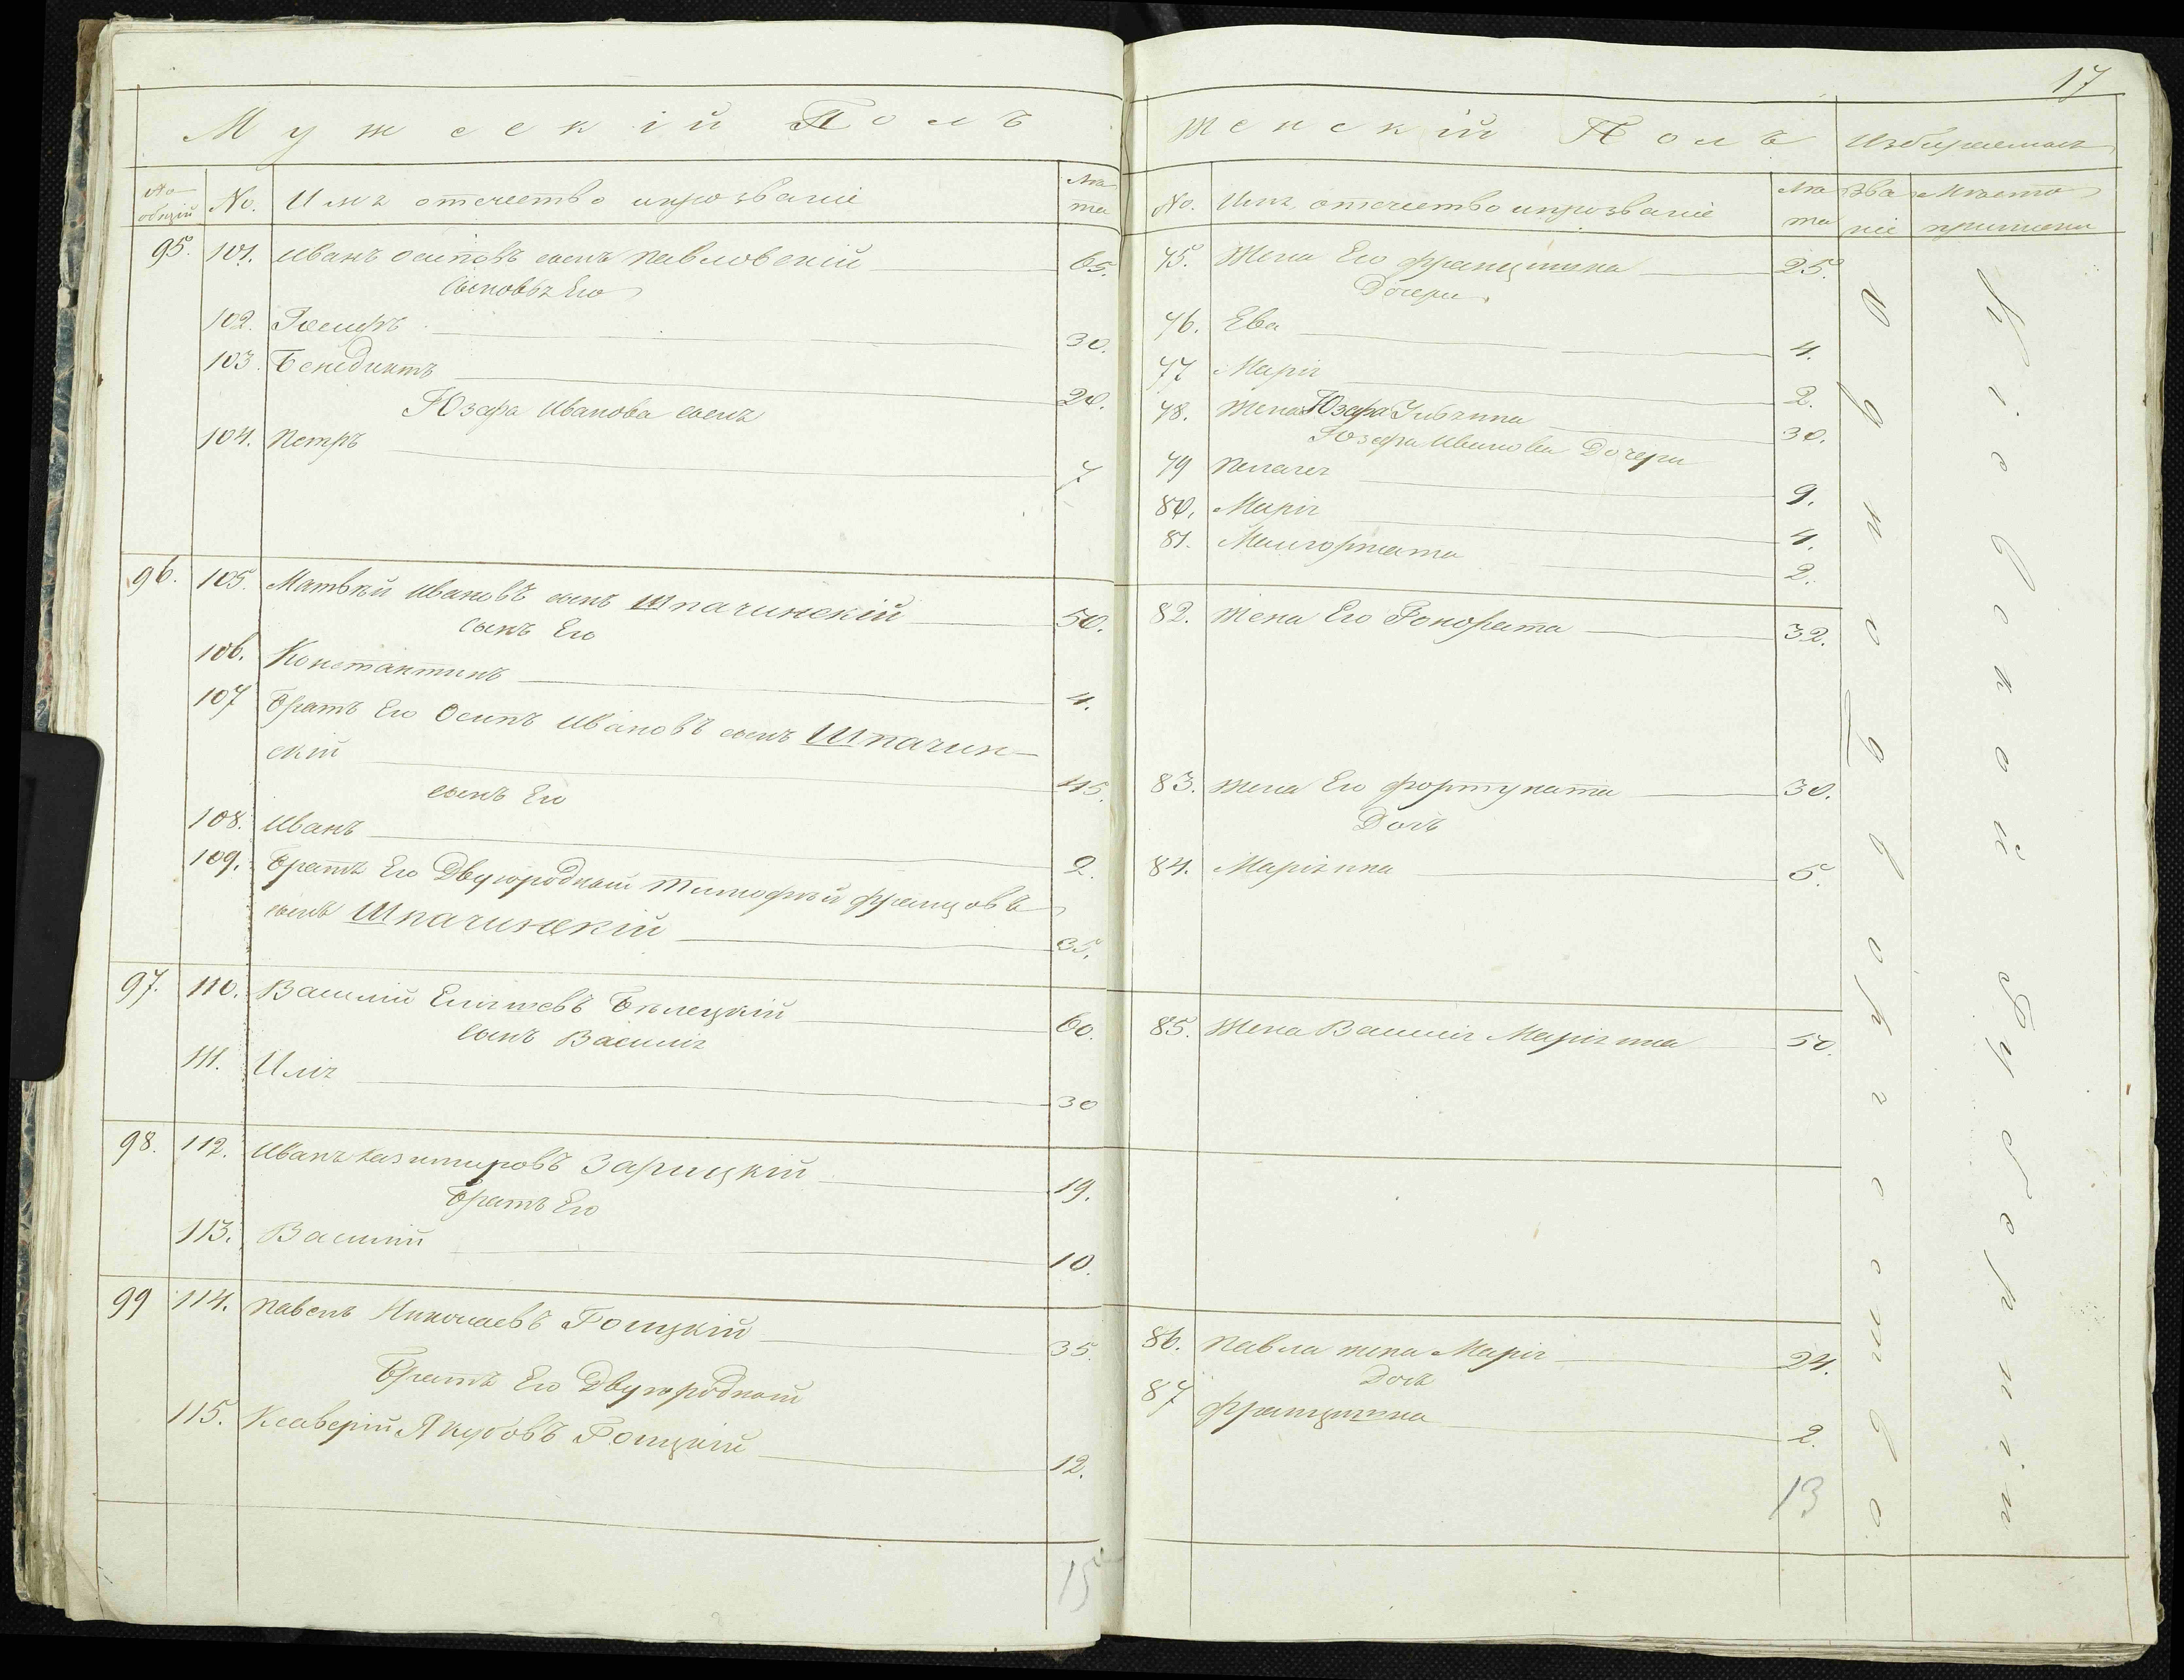 Мужескій Полъ
No общій No. Имя отечество ипрозваніе Лѣта
95. 101. Иванъ Осиповъ сынъ Павловскій 65.
Сыновья Его
102. Юзефъ 30.
103. Бенедиктъ 20.
Юзефа Иванова сынъ
104. Петръ 7
96. 105. Матвѣй Ивановъ сынъ Шпачинскій 50.
сынъ Его
106. Константинъ 4.
107 Братъ Его Осипъ Ивановъ сынъ Шпачин-
скій 45.
сынъ Его
108. Иванъ 2.
109. Братъ Его Двуюродный Тимофей Францовъ
сынъ Шпачинскій 35.
97. 110. Василій Еліяшевъ Бѣлецкій 60.
сынъ Василія
111. Илія 30
98. 112. Иванъ Казимировъ Зарицкій 19.
Братъ Его
113. Василій 10.
99 114. Павелъ Николаевъ Голицкій 35.
Братъ Его Двуюродный
115. Ксаверій Якубовъ Голицкій 12.
15
17
Женскій Полъ Избираемыя
No. Имя отечество ипрозваніе Лѣта Званіе Мѣсто приписки
75. Жена Его Францишка 25.
Дочери
76. Ева 4.
77 Марія 2.
78. Жена Юзефа Уліянна 30.
Юзефа Иванова Дочери
79 Пелагея 9.
80. Марія 4.
81. Малгоржата 2.
82. Жена Его Гонората 32.
83. Жена Его Фортуната 30.
Дочь
84. Маріянна 5.
85. Жена Василія Маріянна 50.
86. Павла жена Марія 24.
Дочь
87 Францишка 2.
13
Однодворчество
Кіевской Губерніи